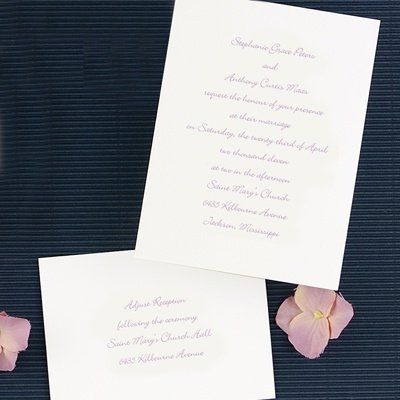 Stephanie Grace Peters
and
Anthony Curtis Maas
request the honour of your presence
at their marriage
on Saturday, the twenty third of April
two thousand eleven
at two in the afternoon
Saint Mary's Church
6435 Kilbourne Avenue
Jackson, Mississippi
Adjust Reception
following the ceremony
Saint Mary's Church Hall
6435 Kilbourne Avenue